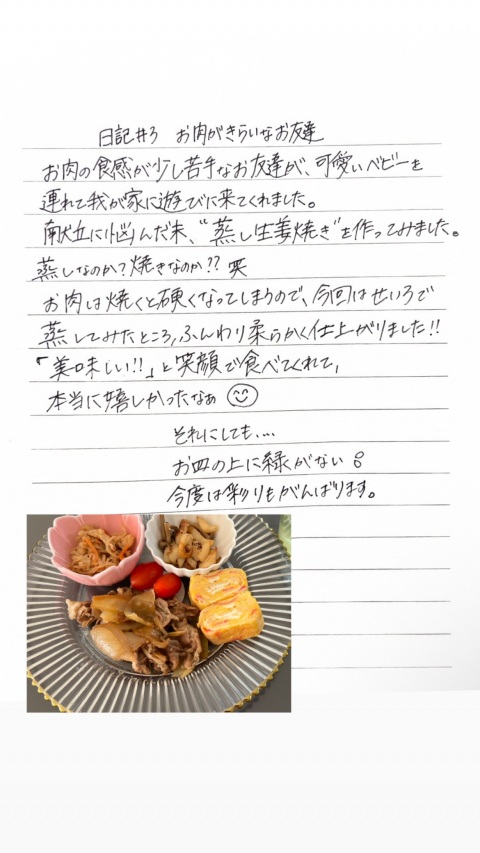 日記#3 お肉がきらいなお友達
お肉の食感が少し苦手なお友達が、可愛いベビーを
連れて我が家に遊びに来てくれました。
献立に悩んだ末、“蒸し生姜焼き”を作ってみました。
蒸しなのか?焼きなのか?? 笑
お肉は焼くと硬くなってしまうので、今回はせいろで
蒸してみたところ、ふんわり柔らかく仕上がりました!!
「美味しい!!」と笑顔で食べてくれて、
本当に嬉しかったなぁ
それにしても....
お皿の上に緑がない
今度は彩りもがんばります。